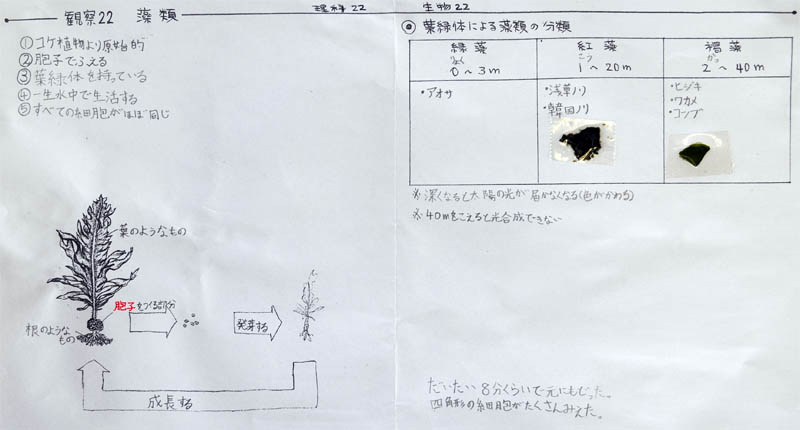 観察22 藻類
理科22
①コケ植物より原始的
②胞子でふえる
③葉緑体を持っている
④一生水中で生活する
⑤すべての細胞がほぼ同じ
葉のようなもの
胞子をつくる部分
根のような
もの
発芽する
成長する
生物22
◎葉緑体による藻類の分類
緑藻
りょく
0〜3m
紅藻
こう
1〜20m
褐藻
かっ
2〜40m
・アオサ
・浅草ノリ
・韓国ノリ
・ヒジキ
・ワカメ
・コンブ
※深くなると太陽の光が届かなくなる(色がかわる)
※40mをこえると光合成できない
だいたい8分くらいで元にもどった。
四角形の細胞がたくさんみえた。